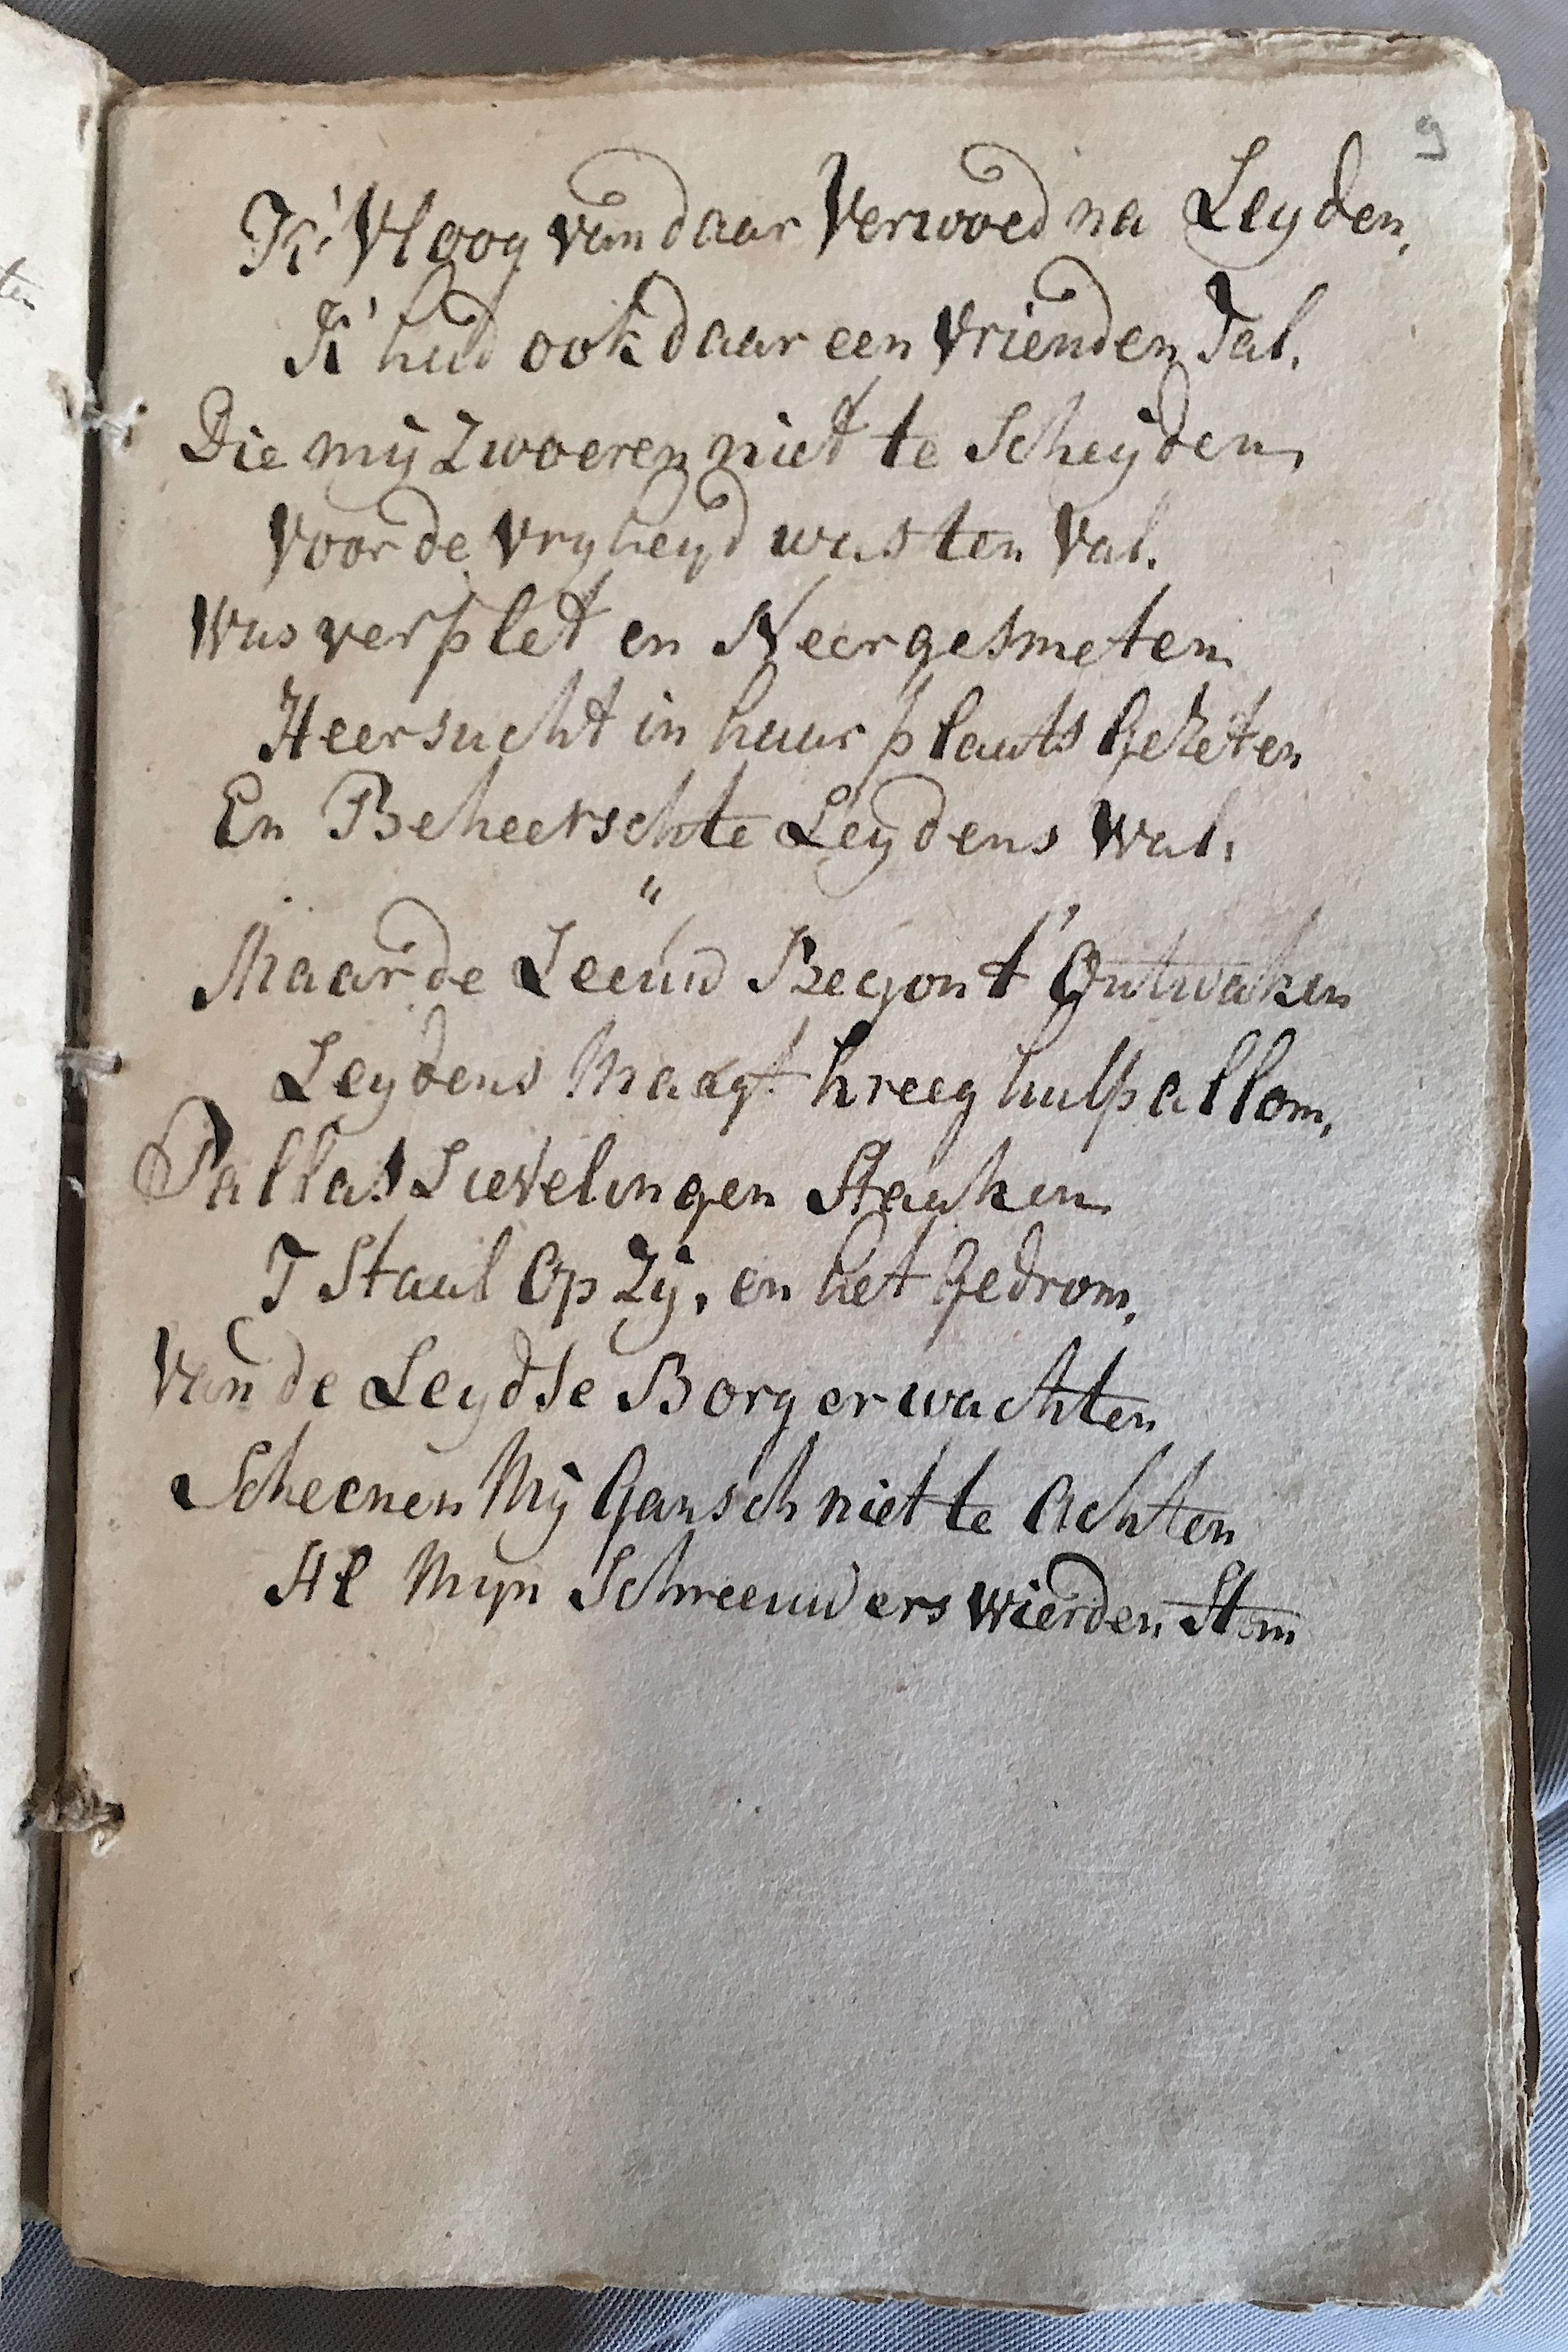 9
K' Vloog van daar Verwoed na Leyden,
K' had ook daar een Vrienden Tal.
Die mij Zwoeren niet te Scheyden,
Voor de Vryheyd was ten Val.
Was verplet en Neergesmeten
Heersucht in haar plaats Gezeten
En Beheerschte Leydens Wal.
"
Maar de Leeuw Begon t' Ontwaken
Leydens Maagt kreeg hulp allom,
Pallas Lievelingen Staaken
T Staal Op Zÿ, en het Gedrom,
Van de Leydse Borgerwachten
Scheenen Mÿ Gansch niet te Achten
Al Myn Schreeuwers wierden Stom